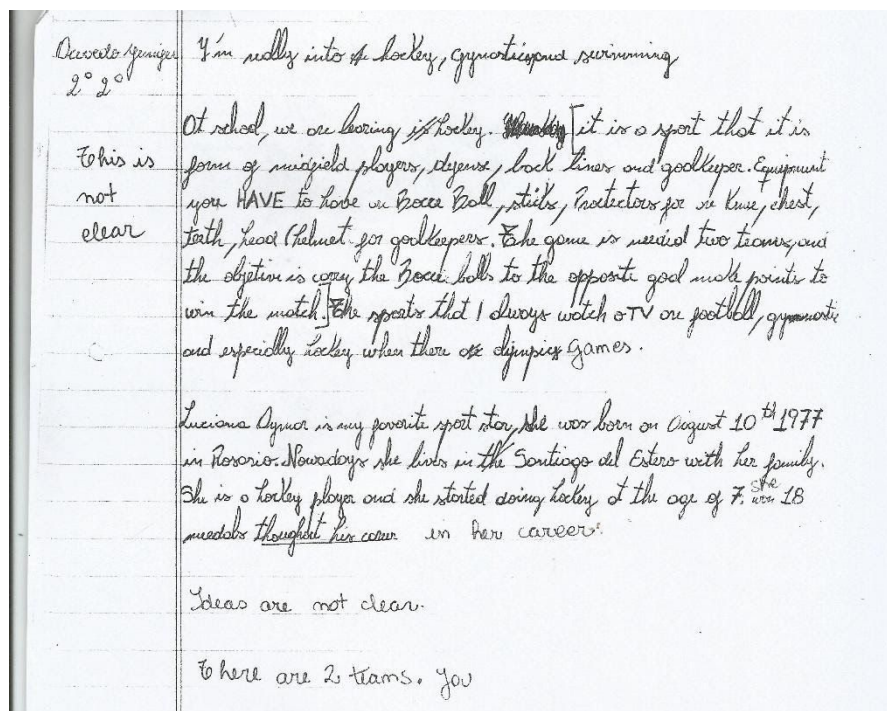 Acevedo Yennifer
2° 2°
I'm really into hockey, gymnastics and swimming
At school, we are learing hockey. [it is a sport that it is
form of midfield players, defense, back lines and goalkeeper. Equipment
you HAVE to have are Bocce Ball, sticks, Protectors for are Knee, chest,
teeth, head (helmet for goalkeepers. The game is needed two teams, and
the objetive is carry the Bocce balls to the opposite goal make points to
win the match.] The sports that I always watch o TV are football, gymnastic
and especially hockey when there are olympics Games.
This is
not
clear
Luciana Aymar is my favorite sport star, she was born on August 10th 1977
in Rosario. Nowadays she lives in the Santiago del Estero with her family.
She is a hockey player and she started doing hockey at the age of 7. she won 18
medals thoughout his career in her career.
Ideas are not clear.
There are 2 teams. You